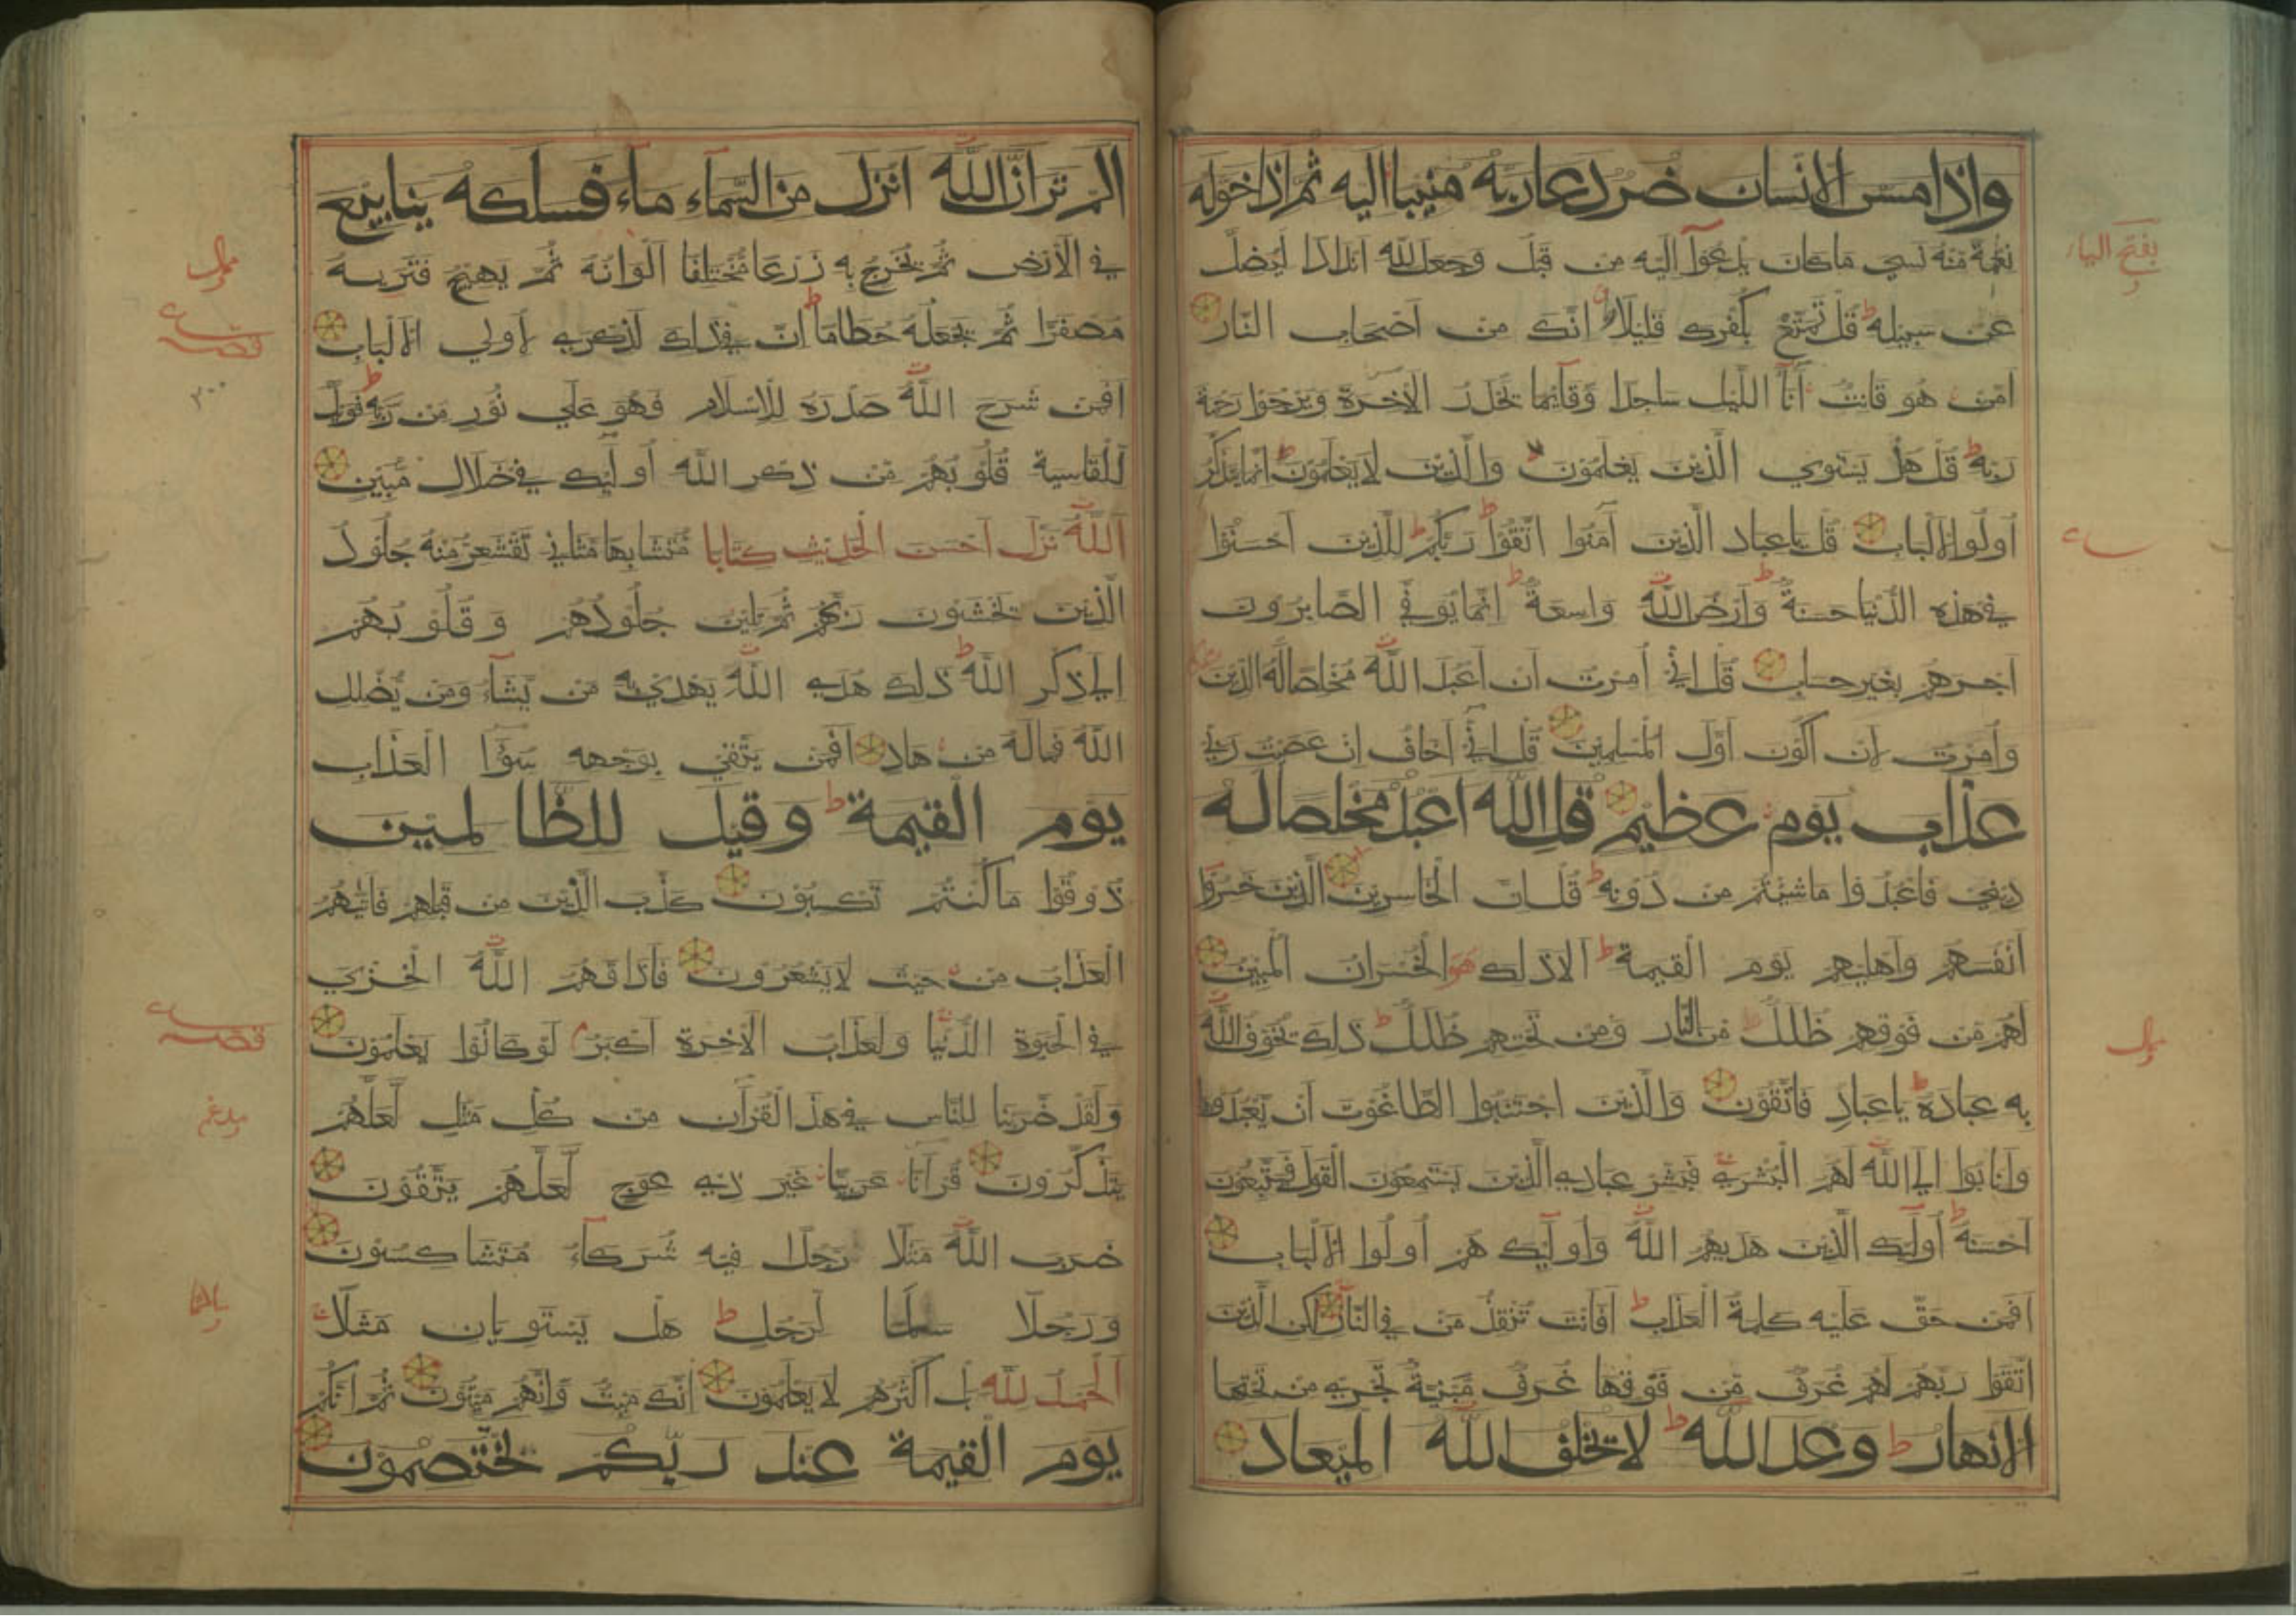 واذا مس الانسان ضر دعا ربه منيبا اليه ثم اذا خوله
نعمة منه نسي ما كان يدعوا اليه من قبل وجعل لله اندادا ليضل
عن سبيله قل تمتع بكفرك قليلا انك من اصحاب النار
امن هو قانت آناء الليل ساجدا وقائما يحذر الآخرة ويرجوا رحمة
ربه قل هل يستوي الذين يعلمون والذين لا يعلمون انما يتذكر
اولوا الالباب قل يا عباد الذين آمنوا اتقوا ربكم للذين احسنوا
في هذه الدنيا حسنة وارض الله واسعة انما يوفي الصابرون
اجرهم بغير حساب قل اني امرت ان اعبد الله مخلصا له الدين
وامرت لان اكون اول المسلمين قل اني اخاف ان عصيت ربي
عذاب يوم عظيم قل الله اعبد مخلصا له
ديني فاعبدوا ما شئتم من دونه قل ان الخاسرين الذين خسروا
انفسهم واهليهم يوم القيمة الا ذلك هو الخسران المبين
لهم من فوقهم ظلل من النار ومن تحتهم ظلل ذلك يخوف الله
به عباده يا عباد فاتقون والذين اجتنبوا الطاغوت ان يعبدوها
وانابوا الي الله لهم البشري فبشر عبادي الذين يستمعون القول فيتبعون
احسنه اولئك الذين هديهم الله واولئك هم اولوا الالباب
افمن حق عليه كلمة العذاب افانت تنقذ من في النار لكن الذين
اتقوا ربهم لهم غرف من فوقها غرف مبنية تجري من تحتها
الانهار وعد الله لا يخلف الله الميعاد
بفتح الياء
الم تر ان الله انزل من السماء ماء فسلكه ينابيع
في الارض ثم يخرج به زرعا مختلفا الوانه ثم يهيج فتريه
مصفرا ثم يجعله حطاما ان في ذلك لذكري لاولي الالباب
افمن شرح الله صدره للاسلام فهو علي نور من ربه فويل
للقاسية قلوبهم من ذكر الله اولئك في ضلال مبين
الله نزل احسن الحديث كتابا متشابها مثاني تقشعر منه جلود
الذين يخشون ربهم ثم تلين جلودهم وقلوبهم
الي ذكر الله ذلك هدي الله يهدي به من يشاء ومن يضلل
الله فما له من هاد افمن يتقي بوجهه سوء العذاب
يوم القيمة وقيل للظالمين
ذوقوا ما كنتم تكسبون كذب الذين من قبلهم فاتيهم
العذاب من حيث لا يشعرون فاذاقهم الله الخزي
في الحيوة الدنيا ولعذاب الآخرة اكبر لو كانوا يعلمون
ولقد ضربنا للناس في هذا القرآن من كل مثل لعلهم
يتذكرون قرآنا عربيا غير ذي عوج لعلهم يتقون
ضرب الله مثلا رجلا فيه شركاء متشاكسون
ورجلا سلما لرجل هل يستويان مثلا
الحمد لله بل اكثرهم لا يعلمون انك ميت وانهم ميتون ثم انكم
يوم القيمة عند ربكم تختصمون
مدغم